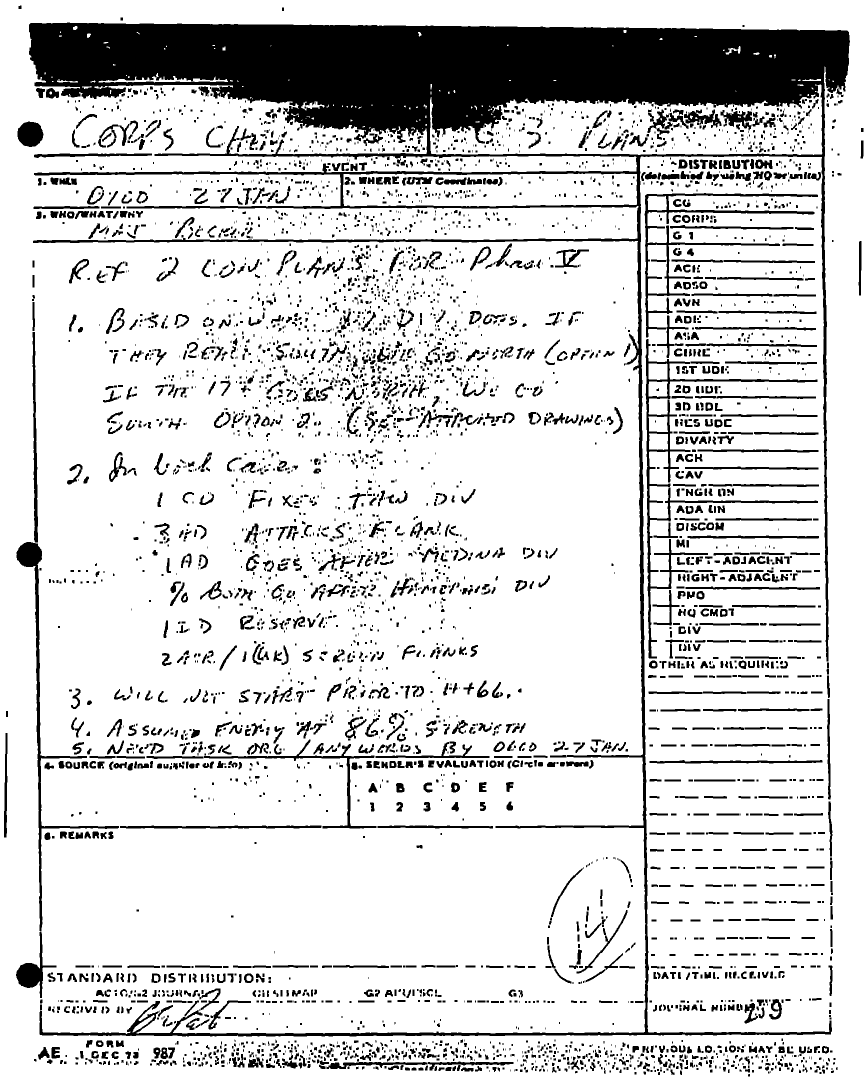 TO:
CORPS CHEM G 3 PLANS
EVENT
1. WHEN
0100 27 JAN
2. WHERE (UTM Coordinates)
3. WHO/WHAT/WHY
MAJ BECKER
REF 2 CON PLANS FOR Phase V
1. BASED ON WHAT 17 DIV DOES. IF
THEY SOUTH, WE GO NORTH (OPTION 1)
IF THE 17th GOES NORTH, WE GO
SOUTH OPTION 2. (SEE ATTACHED DRAWINGS)
2. In both cases:
1 CD FIXES TAW DIV
3 AD ATTACKS FLANK
1AD GOES AFTER MEDINA DIV
% BOTH GO AFTER DIV
1 ID RESERVE
2 ACR/1(UK) SCREEN FLANKS
3. WILL NOT START PRIOR TO H+66.
4. ASSUMED ENEMY AT 86% STRENGTH
5. NEED TASK ORG / ANY WORDS BY 0600 27 JAN.
4. SOURCE (original supplier of info)
5. SENDER'S EVALUATION (Circle answers)
A B C D E F
1 2 3 4 5 6
6. REMARKS
14
STANDARD DISTRIBUTION:
G3
RECEIVED BY
DISTRIBUTION
(determined by using HQ or units)
CG
CORPS
G 1
G 4
ACH
ADSO
AVN
ADE
ASA
CBRE
1ST BDE
2D BDE
3D BDE
RES BDE
DIVARTY
ACR
CAV
ENGR BN
ADA BN
DISCOM
MI
LEFT-ADJACENT
RIGHT-ADJACENT
PMO
HQ CMDT
DIV
DIV
OTHER AS REQUIRED
DATE/TIME RECEIVED
JOURNAL NUMBER
AE FORM 1 DEC 73 987
PREVIOUS EDITION MAY BE USED.